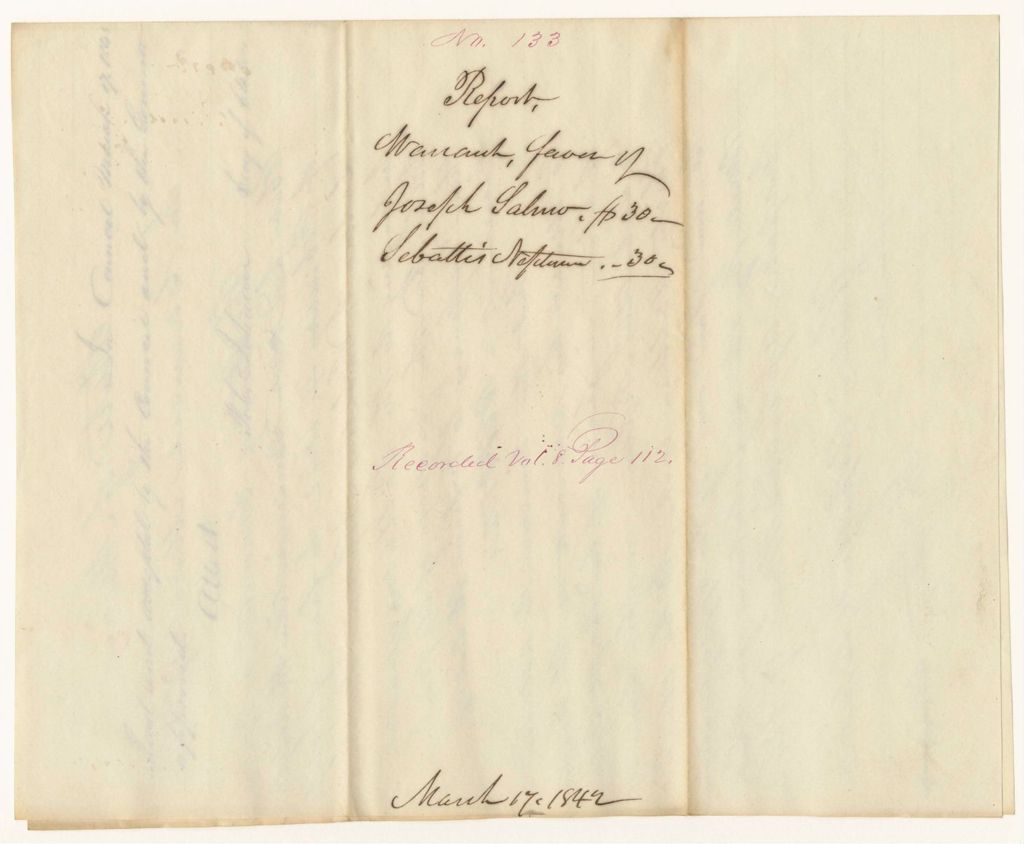 No. 133
Report,
Warrant, favor of
Joseph Salmo. $30-
Sebattis Neptune. - 30-
Recorded Vol. 8. Page 112.
March 17. 1842